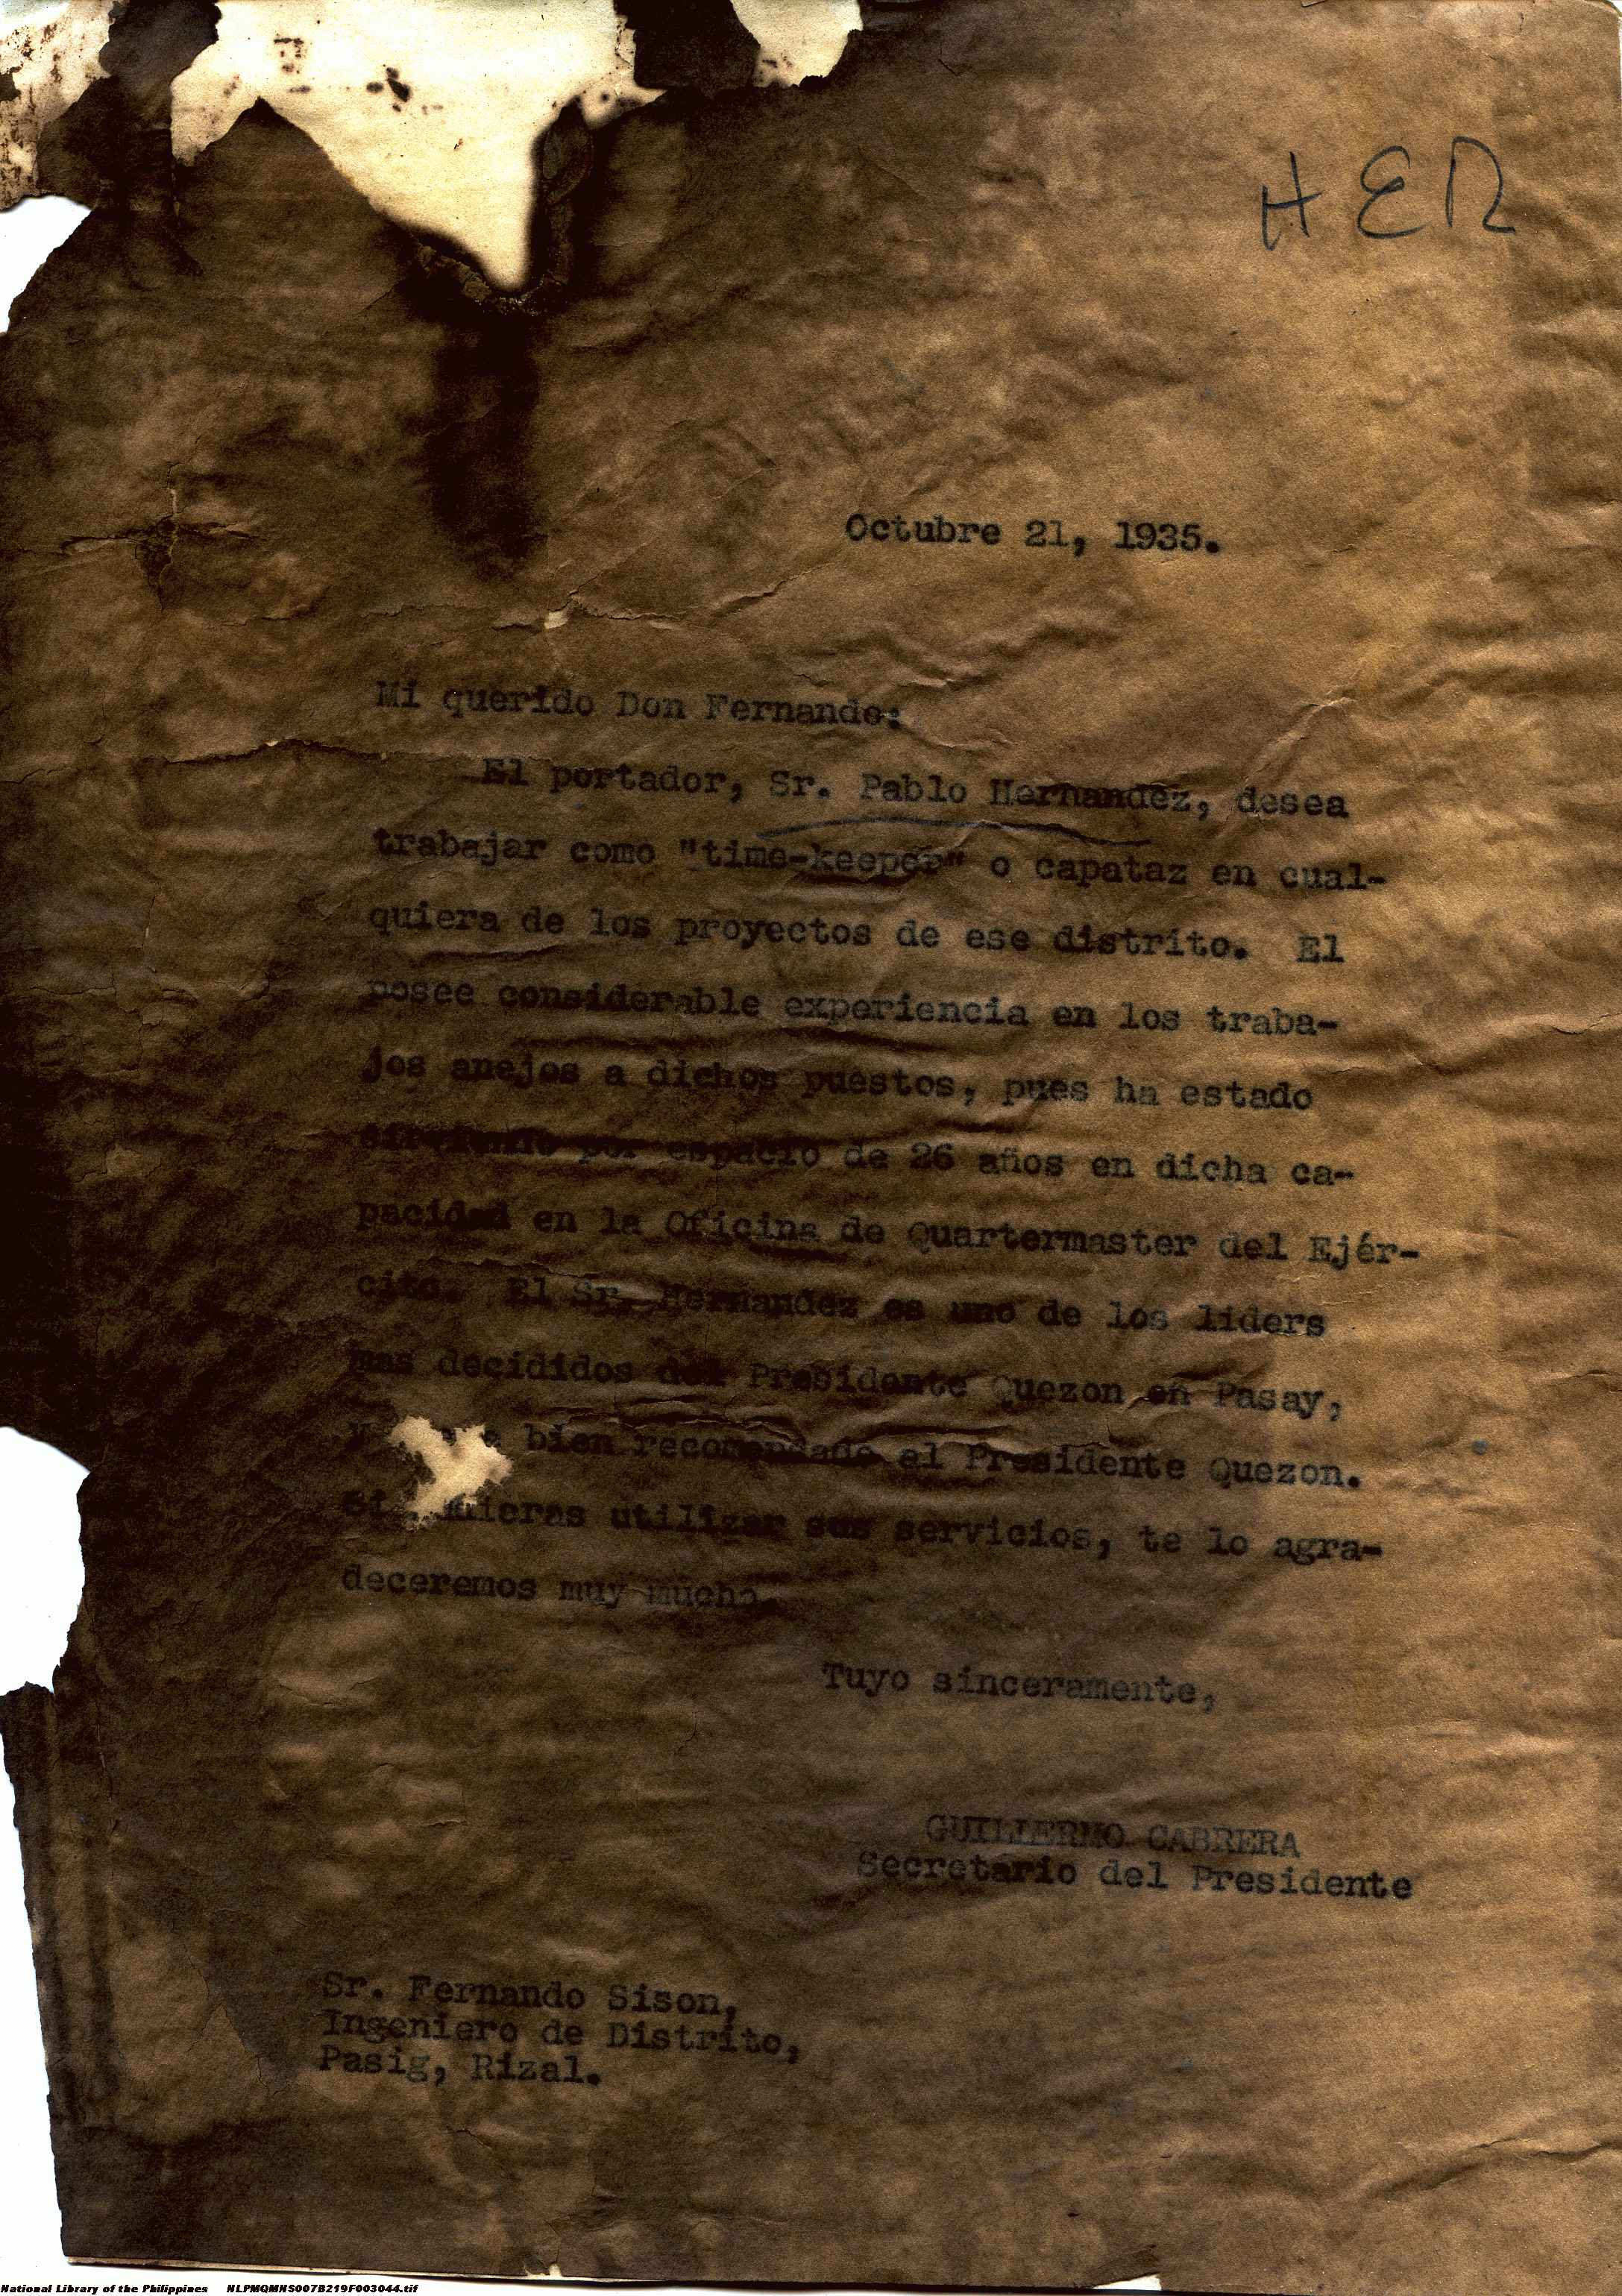 HER
Octubre 21, 1935.
Mi querido Don Fernando:
El portador, Sr. Pablo Hernandez, desea
trabajar como "time-keeper" o capataz en cual-
quiera de los proyectos de ese distrito. El
posee considerable experiencia en los traba-
jos anejos a dichos puestos, pues ha estado
por espacio de 26 años en dicha ca-
pacidad en la Oficina de Quartermaster del Ejér-
cito. El Sr. Hernandez es uno de los liders
mas decididos del Presidente Quezon en Pasay,
bien recomendado al Presidente Quezon.
Si utilizar sus servicios, te lo agra-
deceremos muy mucho.
Tuyo sinceramente,
GUILLERMO CABRERA
Secretario del Presidente
Sr. Fernando Sison,
Ingeniero de Distrito,
Pasig, Rizal.
National Library of the Philippines NLPMQMNS007B219F003044.tif